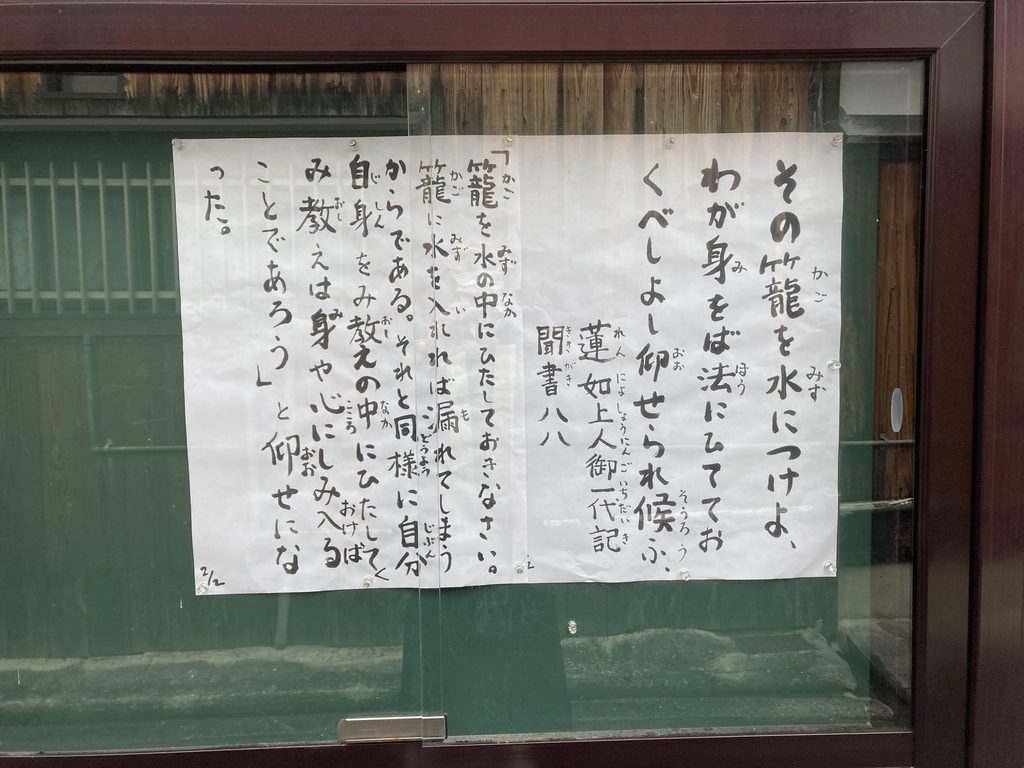 その籠を水につけよ、
わが身をば法にひててお
くべしよし仰せられ候ふ、
蓮如上人御一代記
聞書八八
「籠を水の中にひたしておきなさい。
籠に水を入れれば漏れてしまう
からである。それと同様に自分
自身をみ教えの中にひたしておけば
み教えは身や心にしみ入る
ことであろう」と仰せにな
った。
2/2